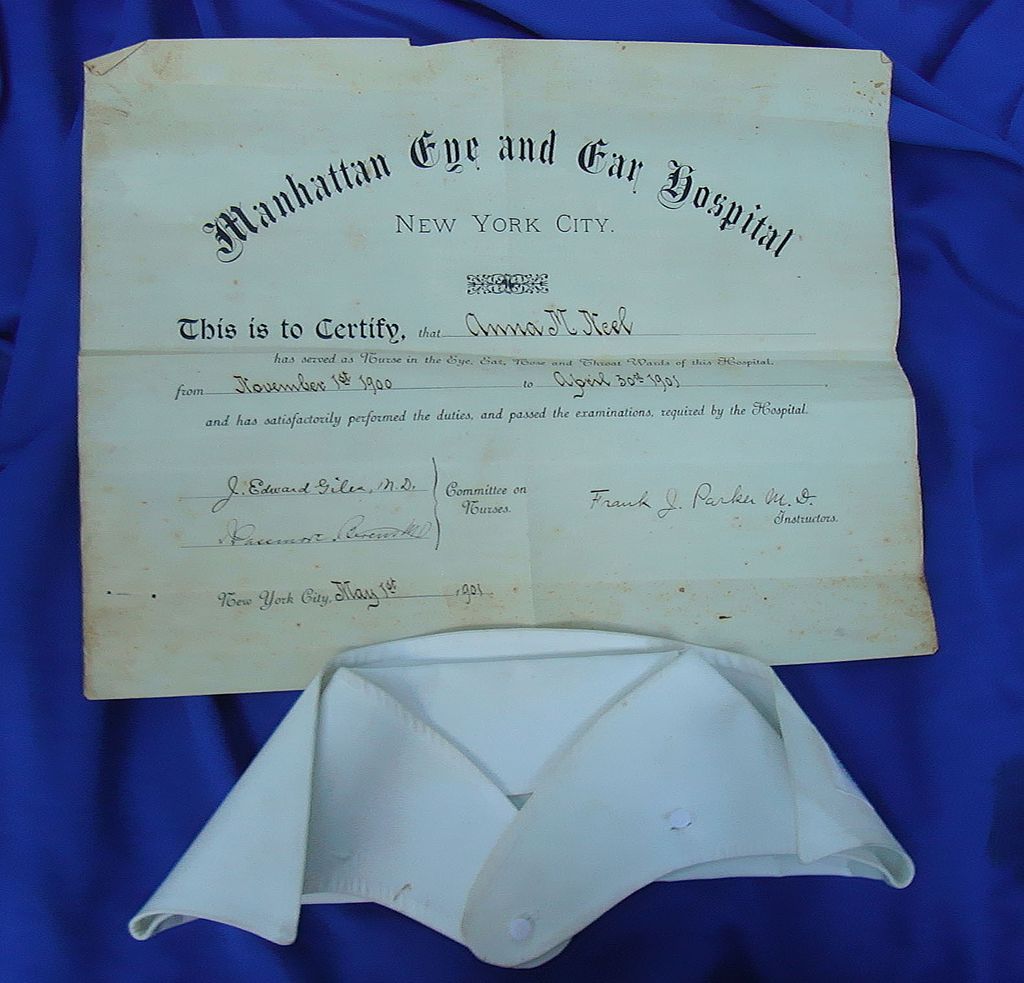 Manhattan Eye and Ear Hospital
NEW YORK CITY.
This is to Certify, that Anna M. Neel
has served as Nurse in the Eye, Ear, Nose and Throat Wards of this Hospital.
from November 1st 1900 to April 30th 1901
and has satisfactorily performed the duties, and passed the examinations, required by the Hospital.
J. Edward Giles, M.D.
Committee on
Nurses.
Frank J. Parker M.D.
Instructors.
New York City, May 1st 1901